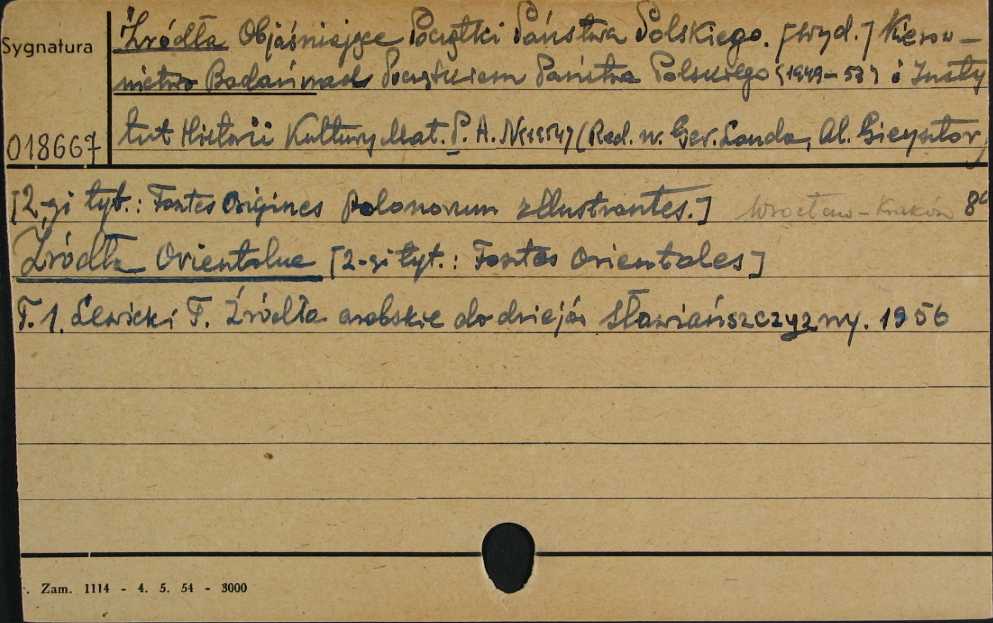 Sygnatura
018667
Źródła Objaśniające Początki Państwa Polskiego. [Wyd.] Kierow-
nictwo Badań nad Początkiem Państwa Polskiego (1949-53) i Insty
tut Historii Kultury Mat. P. A. N. (Red. n. Ger. Labuda, Al. Gieysztor)
[2-gi tyt.: Fontes Origines Polonorum illustrantes.] Wrocław-Kraków 8°
Źródła Orientalne [2-gi tyt.: Fontes Orientales]
T. 1. Lewicki T. Źródła arabskie do dziejów Słowiańszczyzny. 1956
Zam. 1114 - 4. 5. 54 - 3000